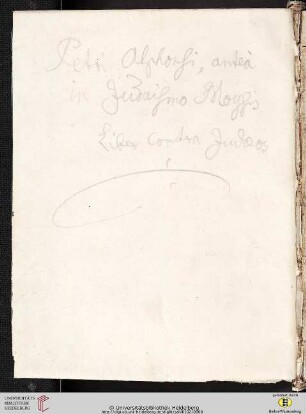 Petri Alphonsi, anteà
in Judaismo Moysis
Liber contra Judæos
UNIVERSITÄTS-
BIBLIOTHEK
HEIDELBERG
© Universitätsbibliothek Heidelberg